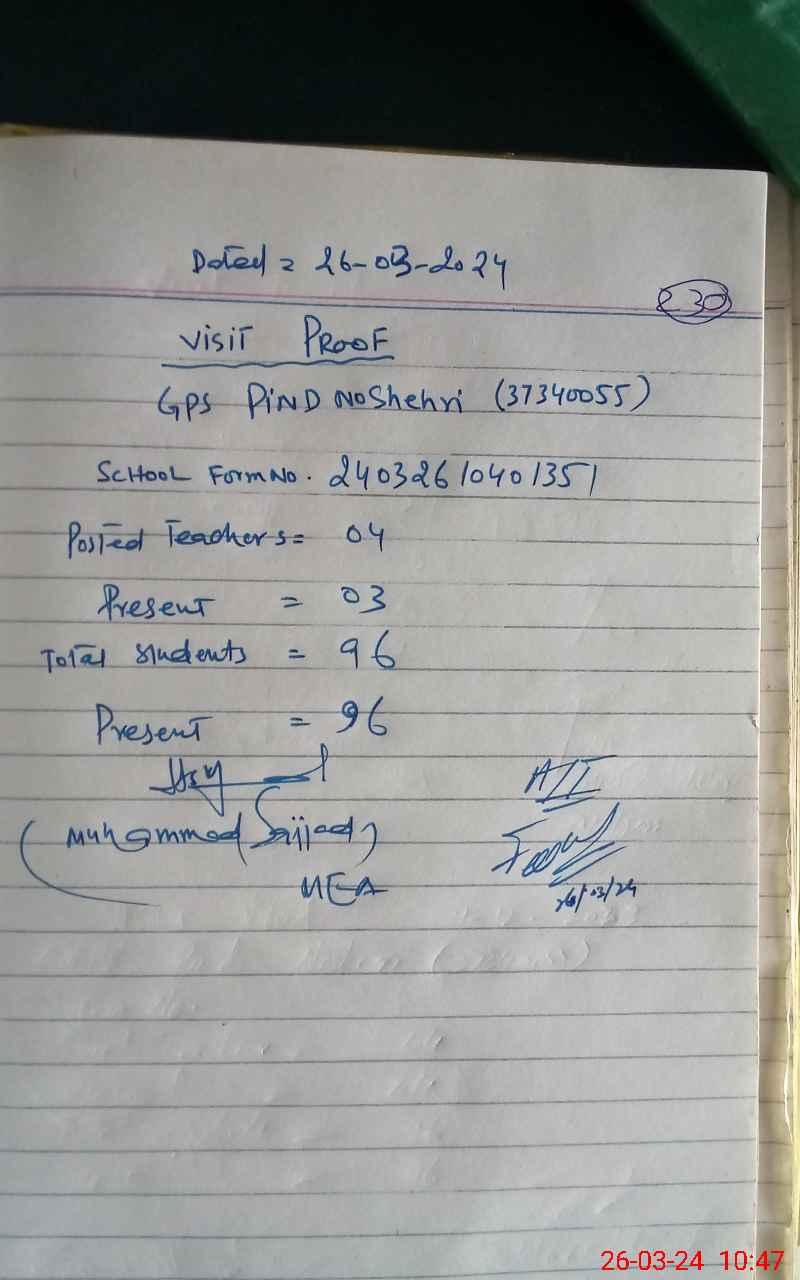 Dated = 26-03-2024
230
VISIT PROOF
GPS PIND NOShehri (37340055)
SCHOOL Form No. 24032610401351
Posted Teachers = 04
Present = 03
Total Students = 96
Present = 96
(Muhammad Sajjad)
MEA
26/03/24
26-03-24 10:47